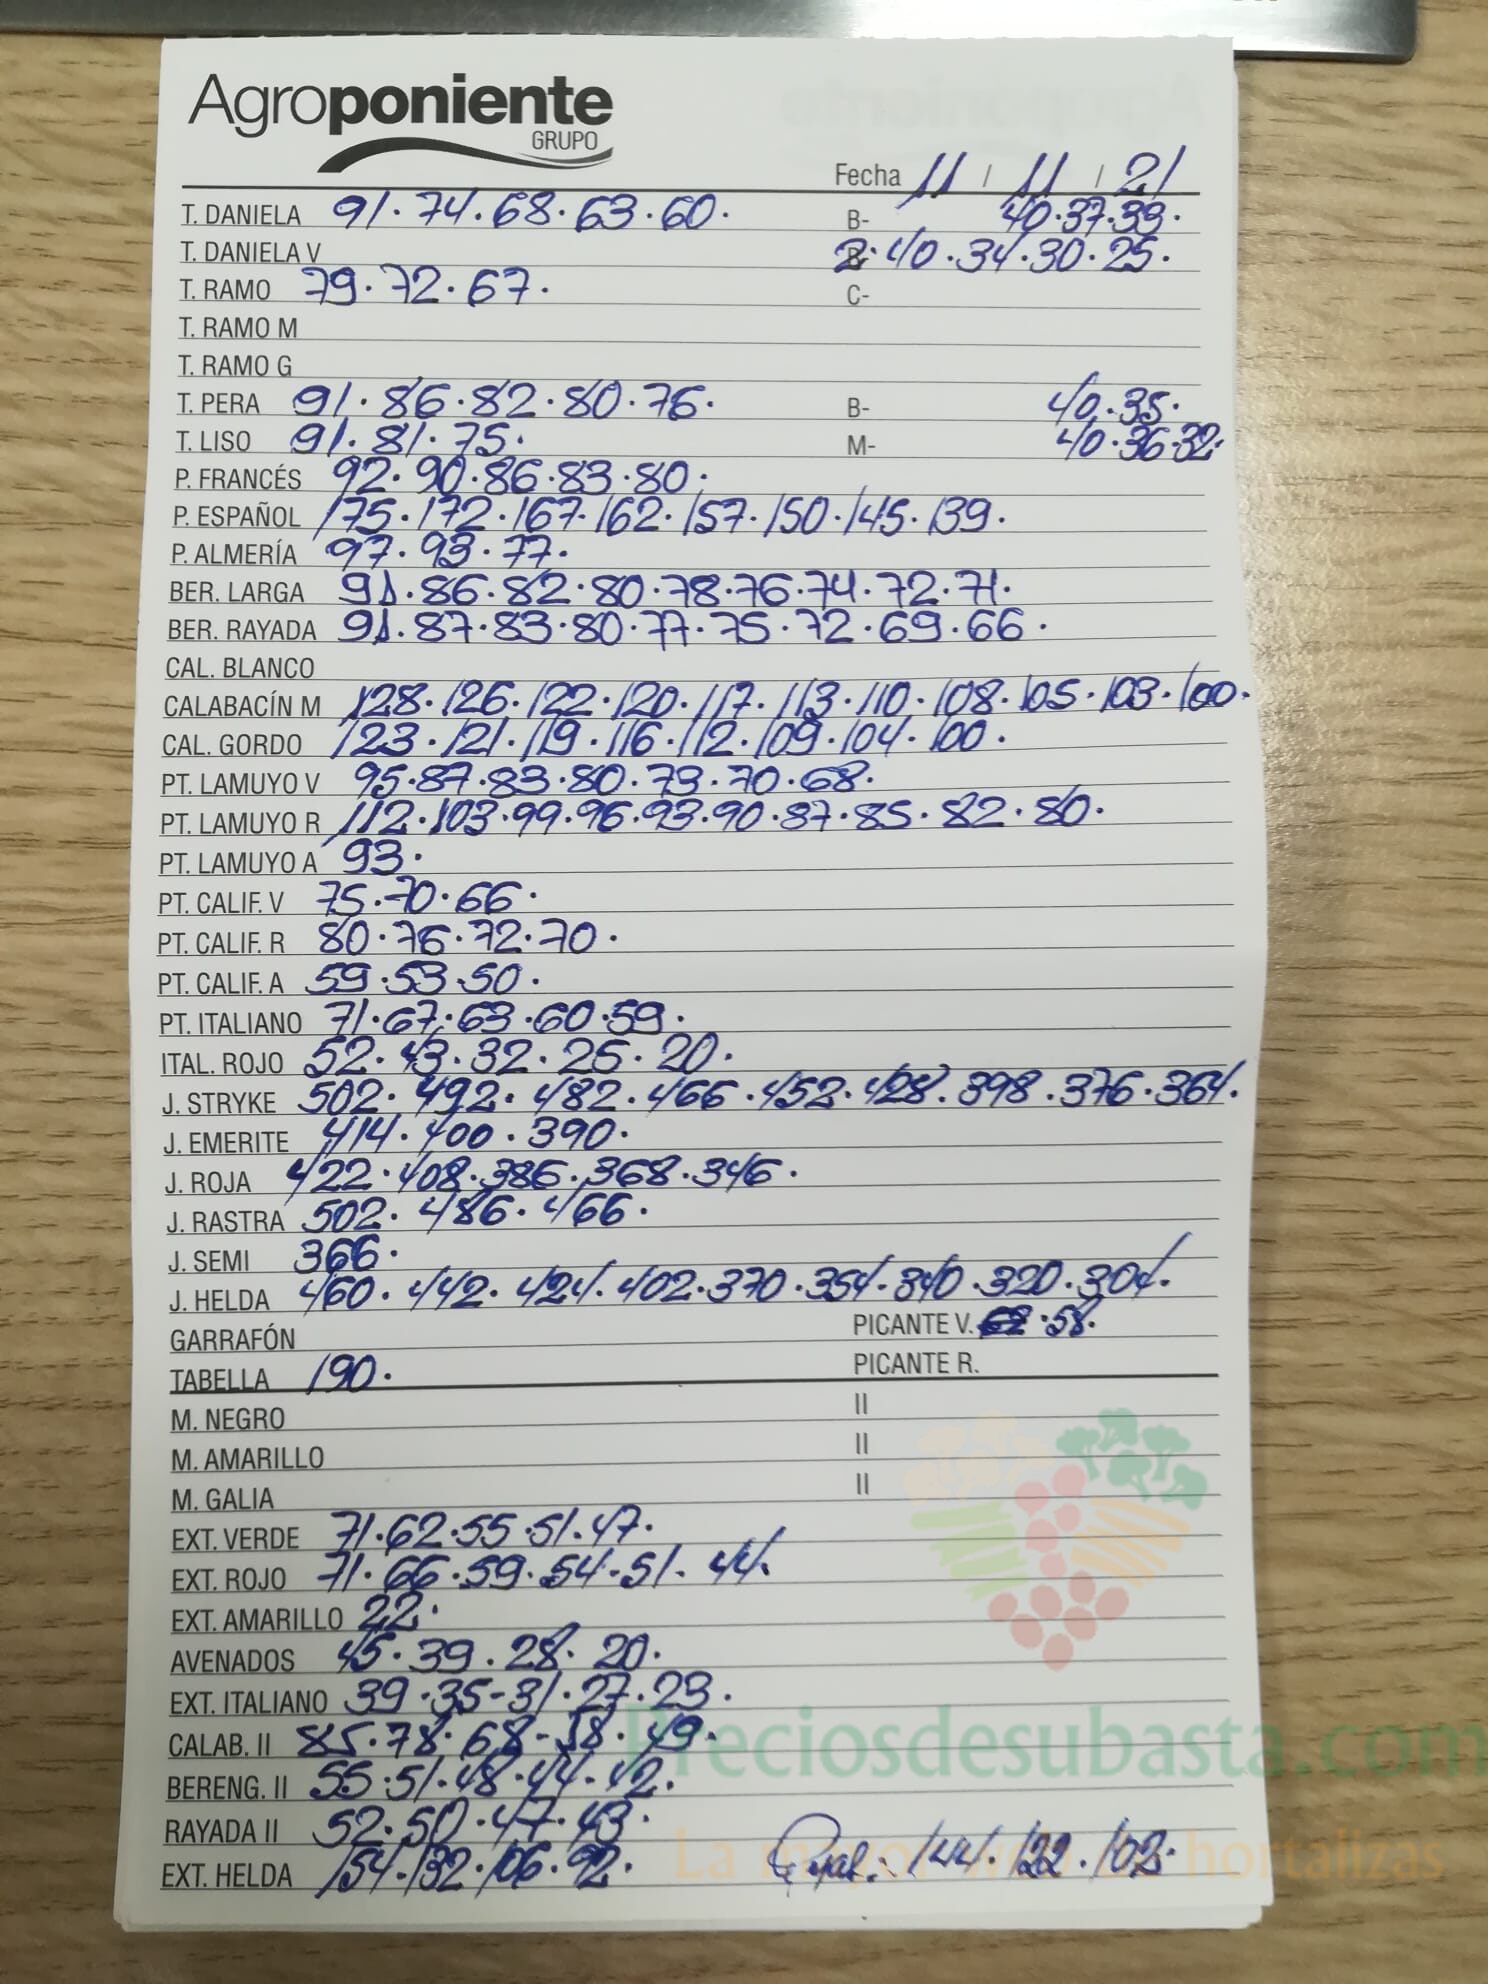 Agroponiente
GRUPO
Fecha 11 / 11 / 21
T. DANIELA 91. 74. 68. 63. 60. B- 40.37.33.
T. DANIELA V 2. 40. 34. 30. 25.
T. RAMO 79. 72. 67. C-
T. RAMO M
T. RAMO G
T. PERA 91. 86. 82. 80. 76. B- 40.35.
T. LISO 91. 81. 75. M- 40.36.32.
P. FRANCÉS 92. 90. 86. 83. 80.
P. ESPAÑOL 175. 172. 167. 162. 157. 150. 145. 139.
P. ALMERÍA 97. 93. 77.
BER. LARGA 91. 86. 82. 80. 78. 76. 74. 72. 71.
BER. RAYADA 91. 87. 83. 80. 77. 75. 72. 69. 66.
CAL. BLANCO
CALABACÍN M 128. 126. 122. 120. 117. 113. 110. 108. 105. 103. 100.
CAL. GORDO 123. 121. 119. 116. 112. 109. 104. 100.
PT. LAMUYO V 95. 87. 83. 80. 73. 70. 68.
PT. LAMUYO R 112. 103. 99. 96. 93. 90. 87. 85. 82. 80.
PT. LAMUYO A 93.
PT. CALIF. V 75. 70. 66.
PT. CALIF. R 80. 76. 72. 70.
PT. CALIF. A 59. 53. 50.
PT. ITALIANO 71. 67. 63. 60. 59.
ITAL. ROJO 52. 43. 32. 25. 20.
J. STRYKE 502. 492. 482. 466. 452. 428. 398. 376. 364.
J. EMERITE 414. 400. 390.
J. ROJA 422. 408. 386. 368. 346.
J. RASTRA 502. 486. 466.
J. SEMI 366.
J. HELDA 460. 442. 424. 402. 370. 354. 340. 320. 304.
GARRAFÓN PICANTE V. 62. 58.
TABELLA 190. PICANTE R.
M. NEGRO II
M. AMARILLO II
M. GALIA II
EXT. VERDE 71. 62. 55. 51. 47.
EXT. ROJO 71. 66. 59. 54. 51. 44.
EXT. AMARILLO 22.
AVENADOS 45. 39. 28. 20.
EXT. ITALIANO 39. 35-31. 27. 23.
Preciosdesubasta.com
CALAB. II 85. 78. 68-58. 49.
BERENG. II 55. 51. 48. 44. 42.
RAYADA II 52. 50. 47. 43.
EXT. HELDA 154. 132. 106. 92. 144. 122. 103.
La hortalizas